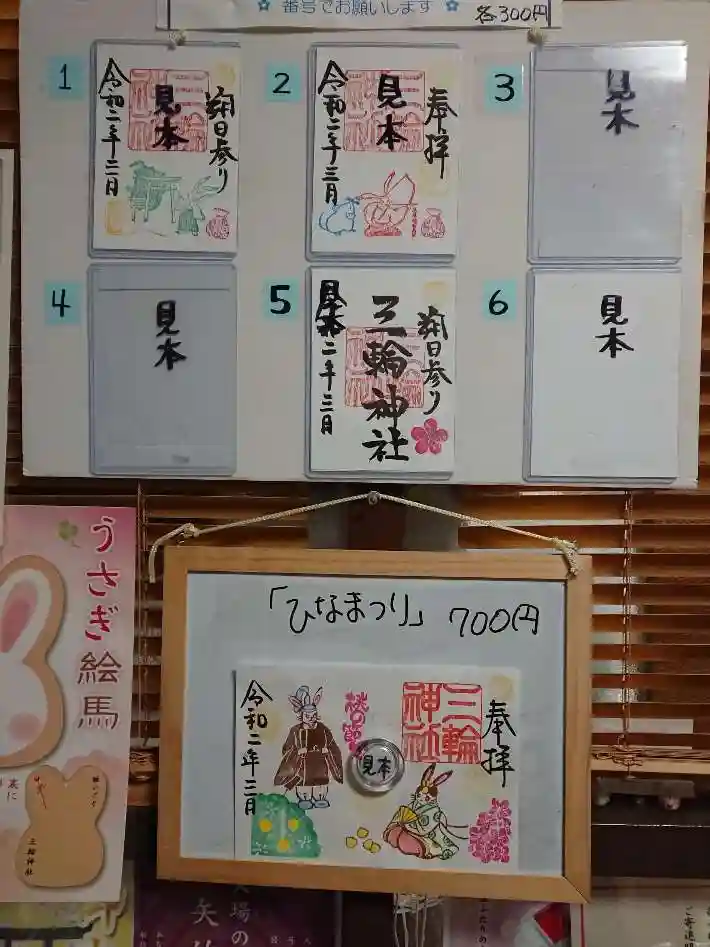 ✿ 番号でお願いします ✿ 各300円
1
令和二年三月
見本
三輪神社
朔日参り
2
令和二年三月
見本
三輪神社
奉拝
3
見本
4
見本
5
見本
二年三月
三輪神社
朔日参り
6
見本
うさぎ絵馬
三輪神社
「ひなまつり」 700円
令和二年三月
見本
三輪神社
奉拝